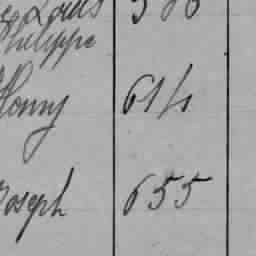 Louis 5
Philippe
Henry 614
Joseph 655